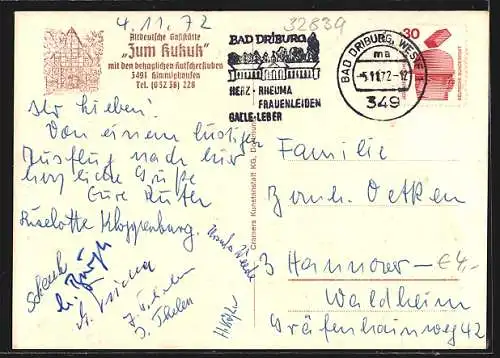 4.11.72
32839
Altdeutsche Gaststätte
„Zum Kukuk"
mit den behaglichen Kutscherstuben
3491 Himmighausen
Tel. (05238) 228
BAD DRIBURG
HERZ · RHEUMA
FRAUENLEIDEN
GALLE · LEBER
BAD DRIBURG, WESTF
ma
-5.11.72-12
349
30
DEUTSCHE BUNDESPOST
Ihr Lieben!
Von einem lustigen
Ausflug nach hier
herzliche Grüße
Eure
Liselotte Kloppenburg.
Schenk
J. Thelen
Cramers Kunstanstalt KG, Dortmund
Familie
Oetken
3 Hannover – €4,-
Waldheim
Gräfenhainweg 42